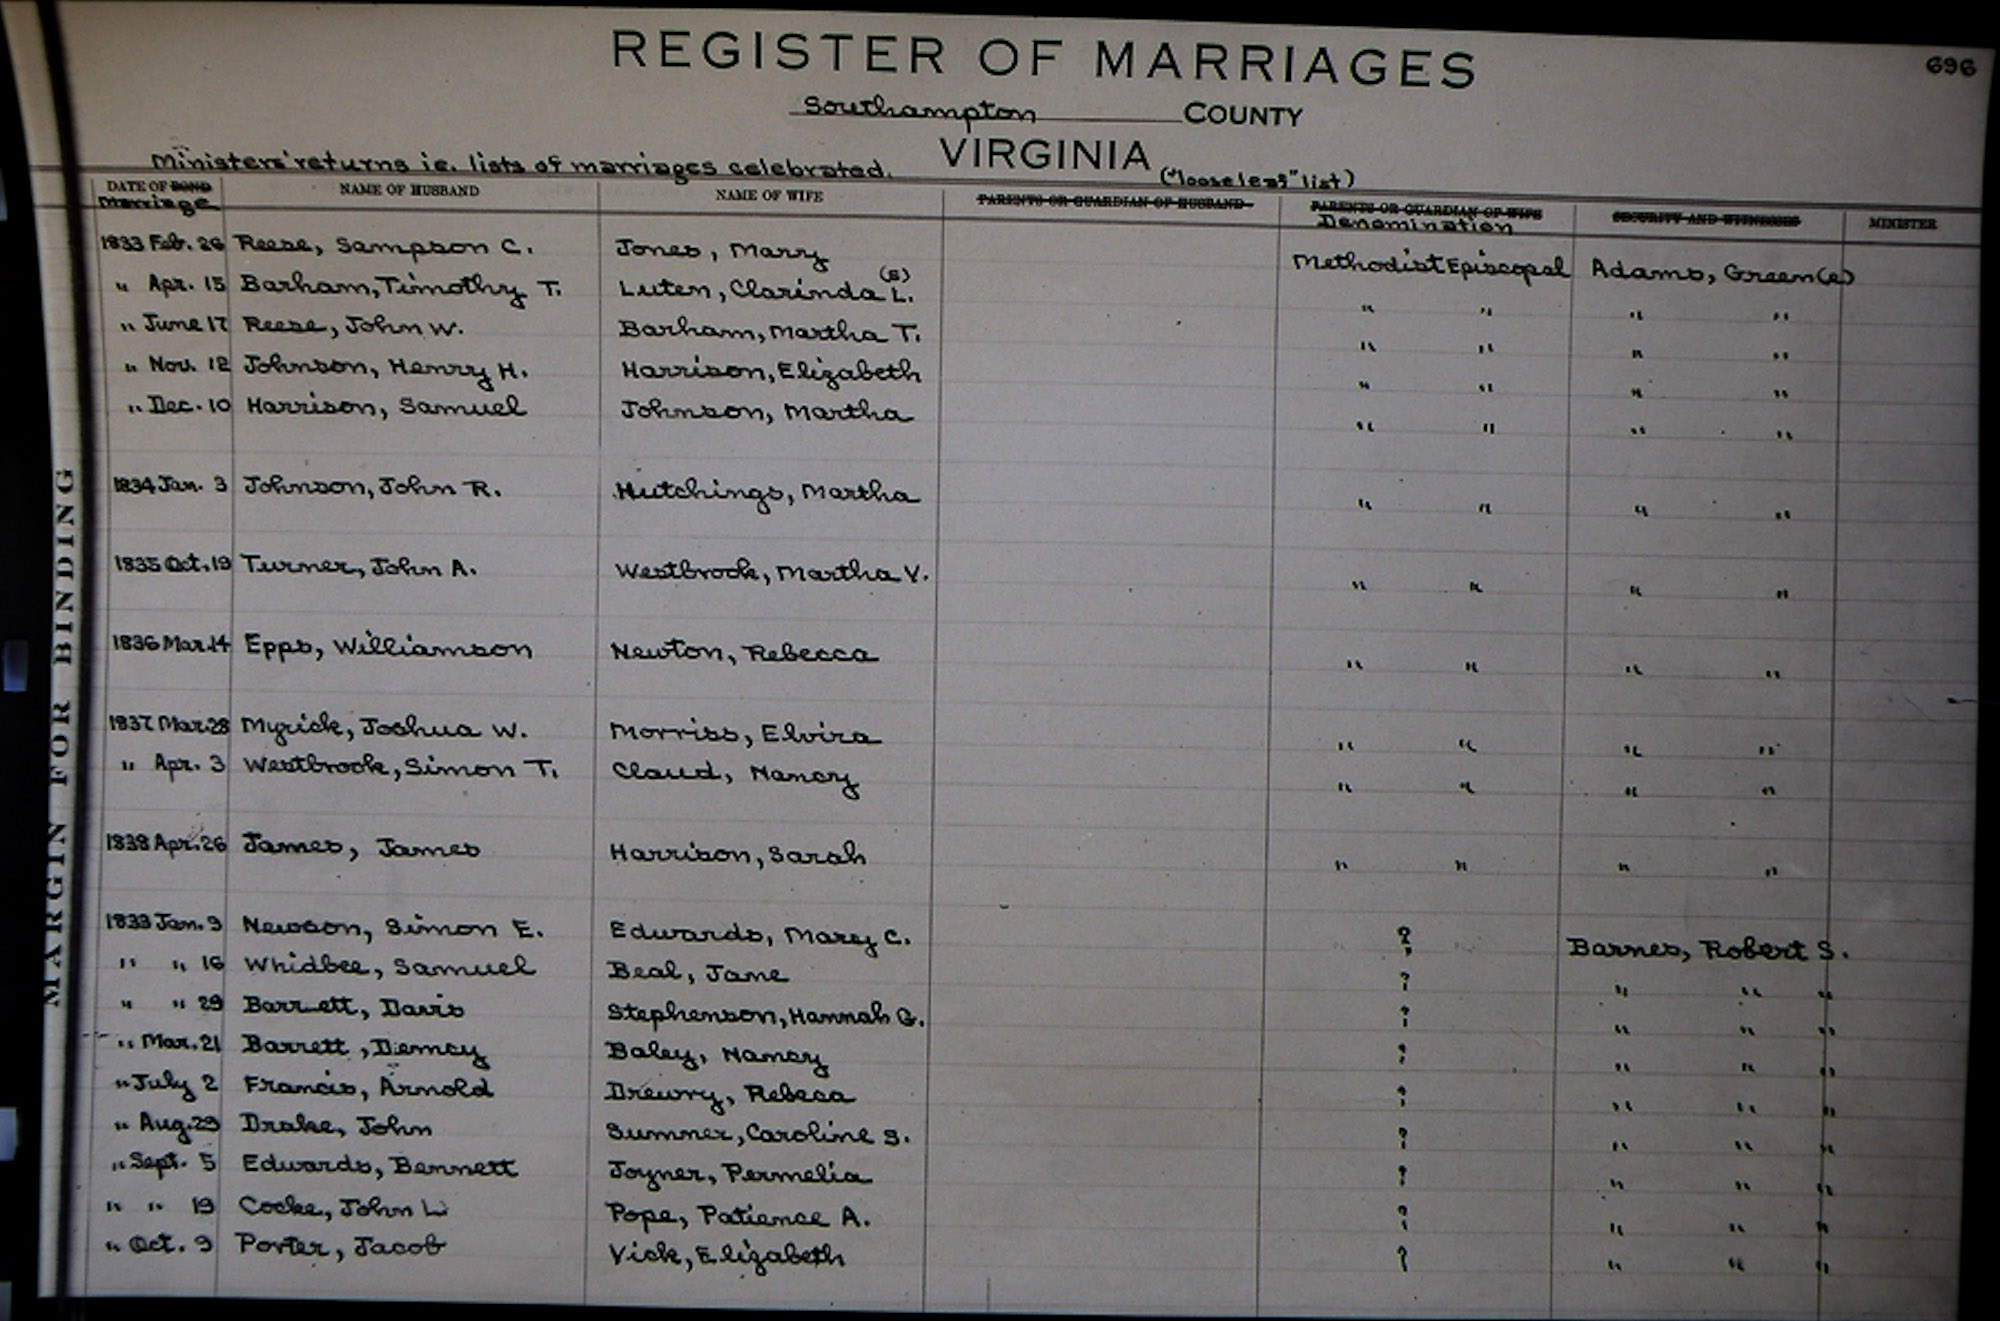 REGISTER OF MARRIAGES
696
Southampton COUNTY
VIRGINIA
Ministers' returns ie. lists of marriages celebrated.
("loose leaf" list)
DATE OF BOND Marriage NAME OF HUSBAND NAME OF WIFE PARENTS OR GUARDIAN OF HUSBAND PARENTS OR GUARDIAN OF WIFE Denomination SECURITY AND WITNESSES MINISTER
1833 Feb. 26 Reese, Sampson C. Jones, Marry Methodist Episcopal Adams, Green(e)
" Apr. 15 Barham, Timothy T. Luten, Clarinda (S) L. " " " "
" June 17 Reese, John W. Barham, Martha T. " " " "
" Nov. 12 Johnson, Henry H. Harrison, Elizabeth " " " "
" Dec. 10 Harrison, Samuel Johnson, Martha " " " "
1834 Jan. 3 Johnson, John R. Hutchings, Martha " " " "
1835 Oct. 19 Turner, John A. Westbrook, Martha V. " " " "
1836 Mar. 14 Epps, Williamson Newton, Rebecca " " " "
1837 Mar. 28 Myrick, Joshua W. Morriss, Elvira " " " "
" Apr. 3 Westbrook, Simon T. Claud, Nancy " " " "
1838 Apr. 26 James, James Harrison, Sarah " " " "
1833 Jan. 9 Newsom, Simon E. Edwards, Marey C. ? Barnes, Robert S.
" " 16 Whidbee, Samuel Beal, Jane ? " " "
" " 29 Barrett, Davis Stephenson, Hannah G. ? " " "
" Mar. 21 Barrett, Demcy Baley, Nancy ? " " "
" July 2 Francis, Arnold Drewry, Rebeca ? " " "
" Aug. 29 Drake, John Summer, Caroline S. ? " " "
" Sept. 5 Edwards, Bennett Joyner, Permelia ? " " "
" " 19 Cocke, John L. Pope, Patience A. ? " " "
" Oct. 9 Porter, Jacob Vick, Elizabeth ? " " "
MARGIN FOR BINDING